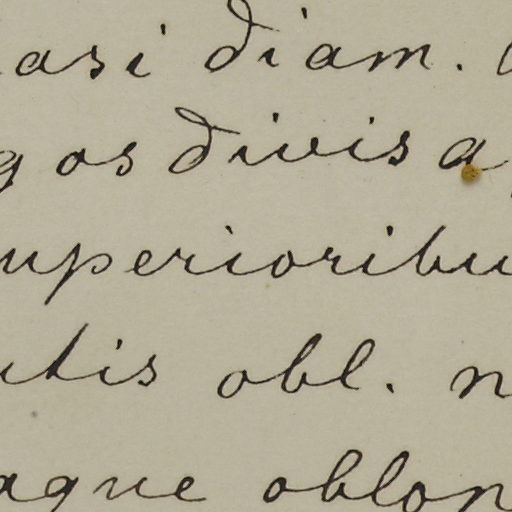 asi diam.
gos divisa
uperioribu
utis obl. n
aque oblon